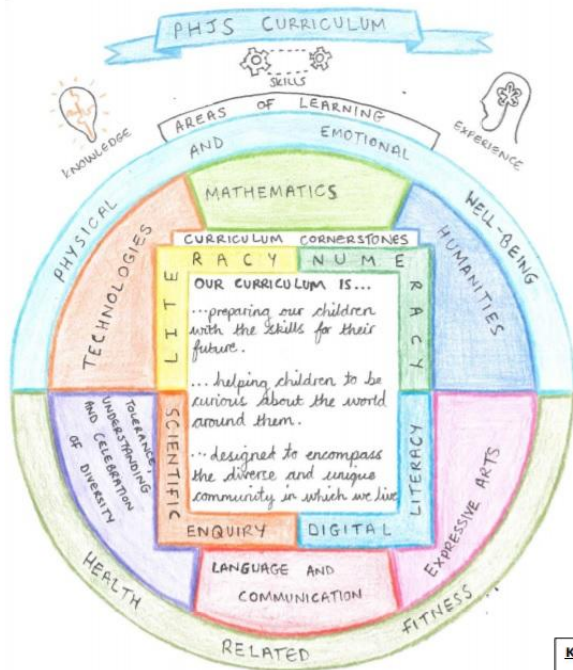 PHJS CURRICULUM
SKILLS
KNOWLEDGE
EXPERIENCE
AREAS OF LEARNING
PHYSICAL AND EMOTIONAL WELL-BEING
MATHEMATICS
TECHNOLOGIES
HUMANITIES
CURRICULUM CORNERSTONES
LITERACY
NUMERACY
OUR CURRICULUM IS...
...preparing our children
with the skills for their
future.
...helping children to be
curious about the world
around them.
...designed to encompass
the diverse and unique
community in which we live
SCIENTIFIC
ENQUIRY
DIGITAL
LITERACY
TOLERANCE,
UNDERSTANDING
AND CELEBRATION
OF DIVERSITY
EXPRESSIVE ARTS
LANGUAGE AND
COMMUNICATION
HEALTH RELATED FITNESS...
K